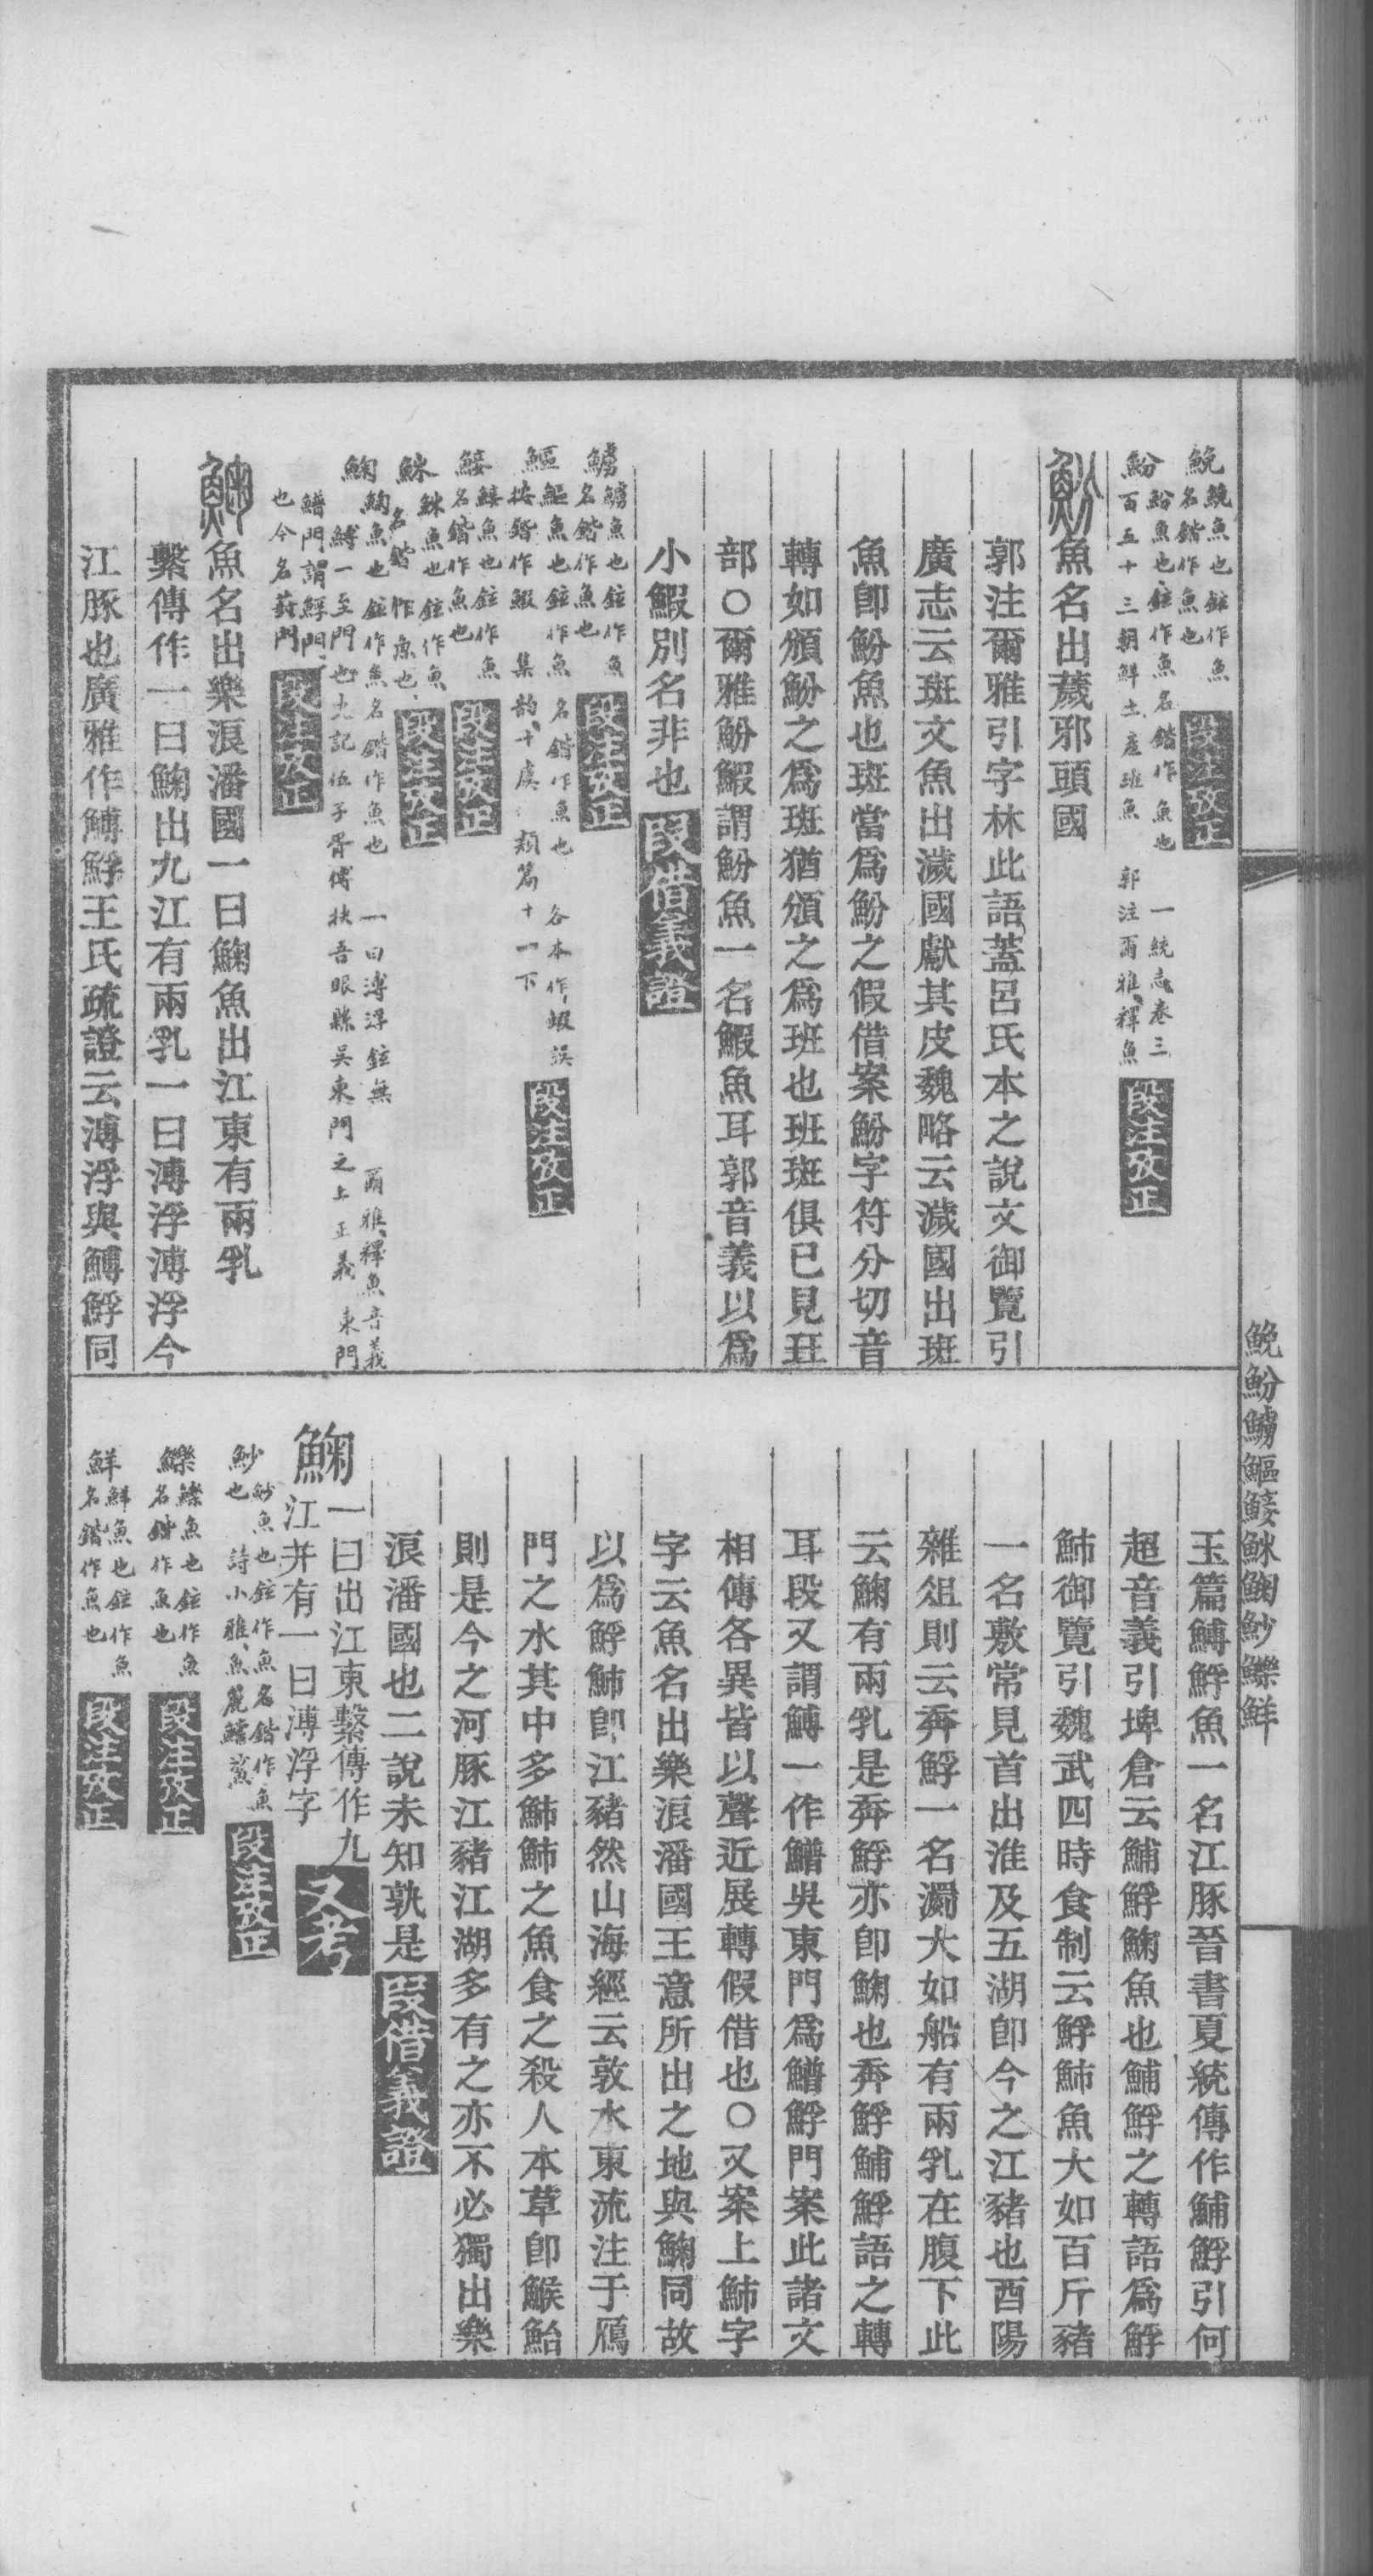 鮸
鮸魚也鉉作魚
名鍇作魚也
段注攷正
魵
魵魚也鉉作魚名鍇作魚也 一統志卷三
百五十三朝鮮土產班魚 郭注爾雅釋魚
段注攷正
魵魚名出薉邪頭國
郭注爾雅引字林此語蓋呂氏本之說文御覽引
廣志云斑文魚出濊國獻其皮魏略云濊國出斑
魚卽魵魚也斑當爲魵之假借案魵字符分切音
轉如頒魵之爲斑猶頒之爲班也班斑俱已見玨
部○爾雅魵鰕謂魵魚一名鰕魚耳郭音義以爲
小鰕別名非也
段借義證
鱸
鱸魚也鉉作魚
名鍇作魚也
段注攷正
鰸
鰸魚也鉉作魚名鍇作魚也 各本作蝦誤
按鍇作鰕 集韵十虞 類篇十一下
段注攷正
鯜
鯜魚也鉉作魚
名鍇作魚也
段注攷正
䱊
䱊魚也鉉作魚
名鍇作魚也
段注攷正
鮈
鮈魚也鉉作魚名鍇作魚也 一曰溥浮鉉無 爾雅釋魚音義
鱄一至門也史記伍子胥傳抉吾眼縣吳東門之上正義 東門
鱛門謂鯙門
也今名葑門
段注攷正
鮈魚名出樂浪潘國一曰鮈魚出江東有兩乳
繫傳作一曰鮈出九江有兩乳一曰溥浮溥浮今
江豚也廣雅作鱄䱐王氏疏證云溥浮與鱄䱐同
玉篇鱄䱐魚一名江豚晉書夏統傳作鯆䱐引何
超音義引埤倉云鯆䱐鮈魚也鯆䱐之轉語爲䱐
䰽御覽引魏武四時食制云䱐䰽魚大如百斤豬
一名敷常見首出淮及五湖卽今之江豬也酉陽
雜俎則云奔䱐一名瀱大如船有兩乳在腹下此
云鮈有兩乳是奔䱐亦卽鮈也奔䱐鯆䱐語之轉
耳段又謂鱄一作鱛吳東門爲鱛䱐門案此諸文
相傳各異皆以聲近展轉假借也○又案上䰽字
字云魚名出樂浪潘國王意所出之地與鮈同故
以爲䱐䰽卽江豬然山海經云敦水東流注于鴈
門之水其中多䰽䰽之魚食之殺人本草卽鯸鮐
則是今之河豚江豬江湖多有之亦不必獨出樂
浪潘國也二說未知孰是
段借義證
鮈
一曰出江東繫傳作九
江幷有一曰溥浮字
又考
魦
魦魚也鉉作魚名鍇作魚
也 詩小雅魚麗鱨鯊
段注攷正
鱳
鱳魚也鉉作魚
名鍇作魚也
段注攷正
鮮
鮮魚也鉉作魚
名鍇作魚也
段注攷正
鮸魵鱸鰸鯜䱊鮈魦鱳鮮